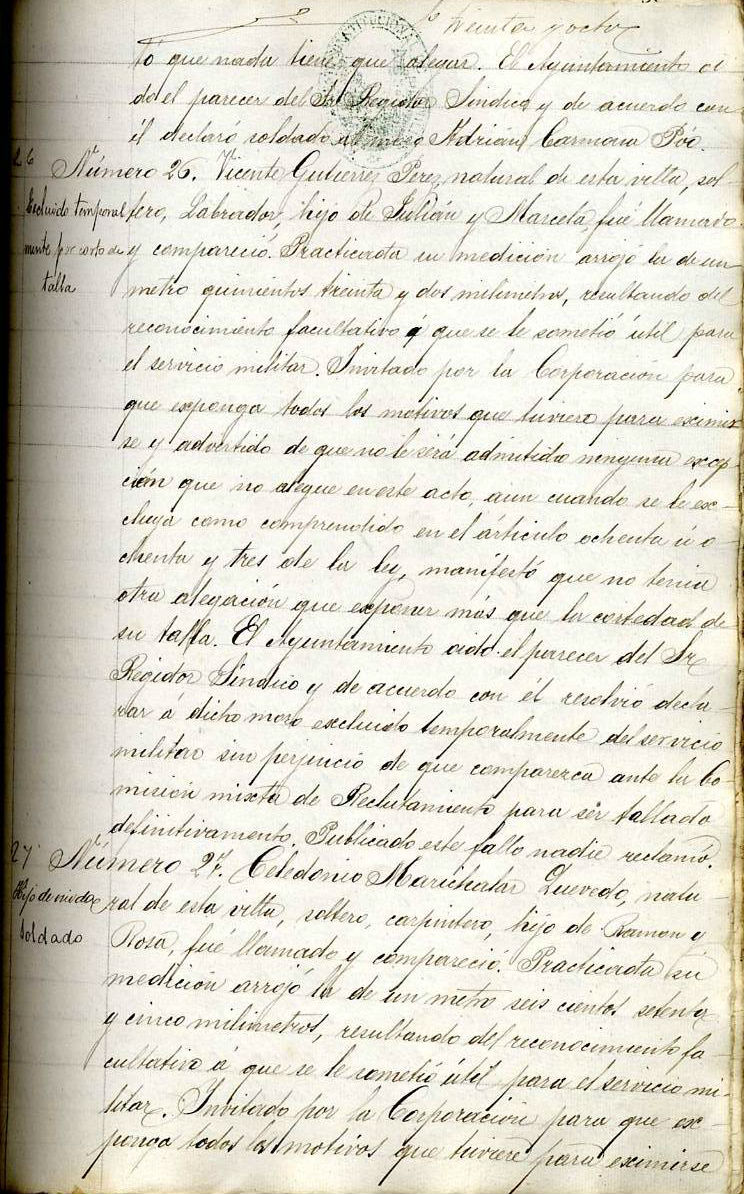 Veinte y ocho
tó que nada tiene que alegar. El Ayuntamiento oi-
do el parecer del Sr. Regidor Síndico y de acuerdo con
él declaró soldado al mozo Adrián Carmona Póo.
26
Número 26. Vicente Gutierrez Perez, natural de esta villa, sol-
Excluido temporal
tero, Labrador, hijo de Julián y Marcela, fué llamado
mente por corto de
y compareció. Practicada su medición arrojó la de un
talla
metro quinientos treinta y dos milimetros, resultando del
reconocimiento facultativo á que se le sometió útil para
el servicio militar. Invitado por la Corporación para
que exponga todos los motivos que tuviere para eximir
se y advertido de que no le será admitida ninguna excep-
ción que no alegue en este acto, aun cuando se le ex-
cluya como comprendido en el árticulo ochenta ú o-
chenta y tres de la ley, manifestó que no tenia
otra alegación que exponer más que la cortedad de
su talla. El Ayuntamiento oido el parecer del Sr.
Regidor Síndico y de acuerdo con él resolvió decla-
rar a dicho mozo excluido temporalmente del servicio
militar sin perjuicio de que comparezca ante la Co-
misión mixta de Reclutamiento para sér tallado
definitivamente. Publicado este fallo nadie reclamó.
27
Número 27. Celedonio Marichalar Quevedo, natu-
Hijo de viuda
ral de esta villa, soltero, carpintero, hijo de Ramon y
soldado
Rosa, fué llamado y compareció. Practicada su
medición arrojó la de un metro seis cientos setenta
y cinco milimetros, resultando del reconocimiento fa-
cultativo á que se le sometió útil para el servicio mi-
litar. Invitado por la Corporación para que ex-
ponga todos los motivos que tuviere para eximirse